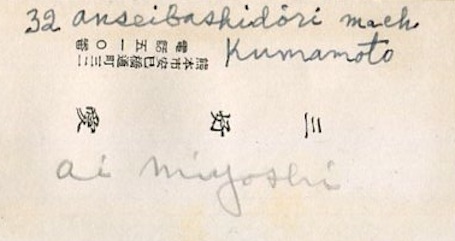 32 anseibashidōri machi
Kumamoto
電話五一〇番
熊本市安巳橋通町三二
三好愛
ai miyoshi